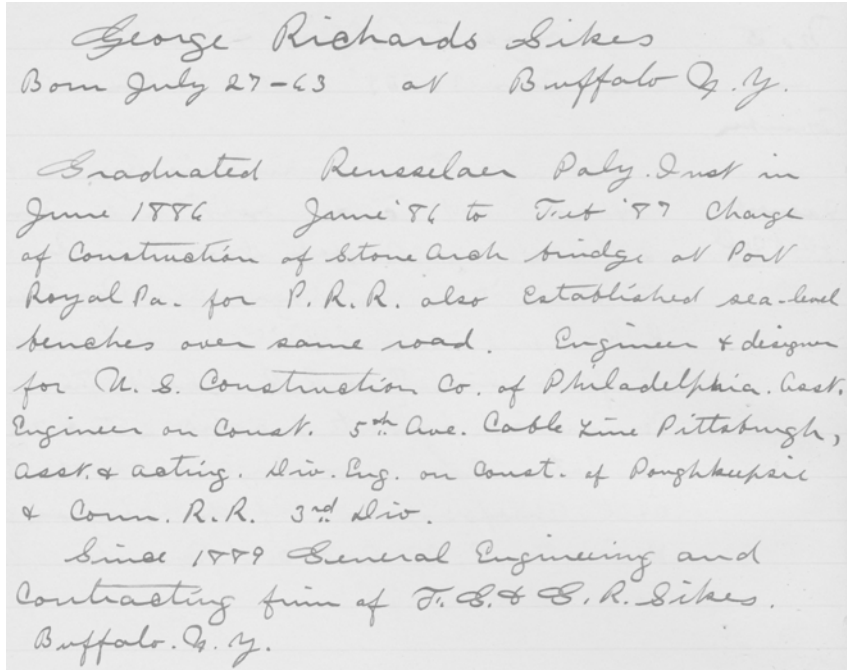 George Richards Sikes
Born July 27-63 at Buffalo N.Y.
Graduated Rensselaer Poly. Inst in
June 1886 June '86 to Feb '87 Charge
of Construction of Stone Arch bridge at Port
Royal Pa. for P.R.R. also Established sea-level
benches over same road. Engineer & designer
for U.S. Construction Co. of Philadelphia. Asst.
Engineer on Const. 5th Ave. Cable Line Pittsburgh,
Asst. & acting. Div. Eng. on Const. of Poughkeepsie
& Conn. R.R. 3rd Div.
Since 1889 General Engineering and
Contracting firm of F.G. & G.R. Sikes.
Buffalo. N.Y.